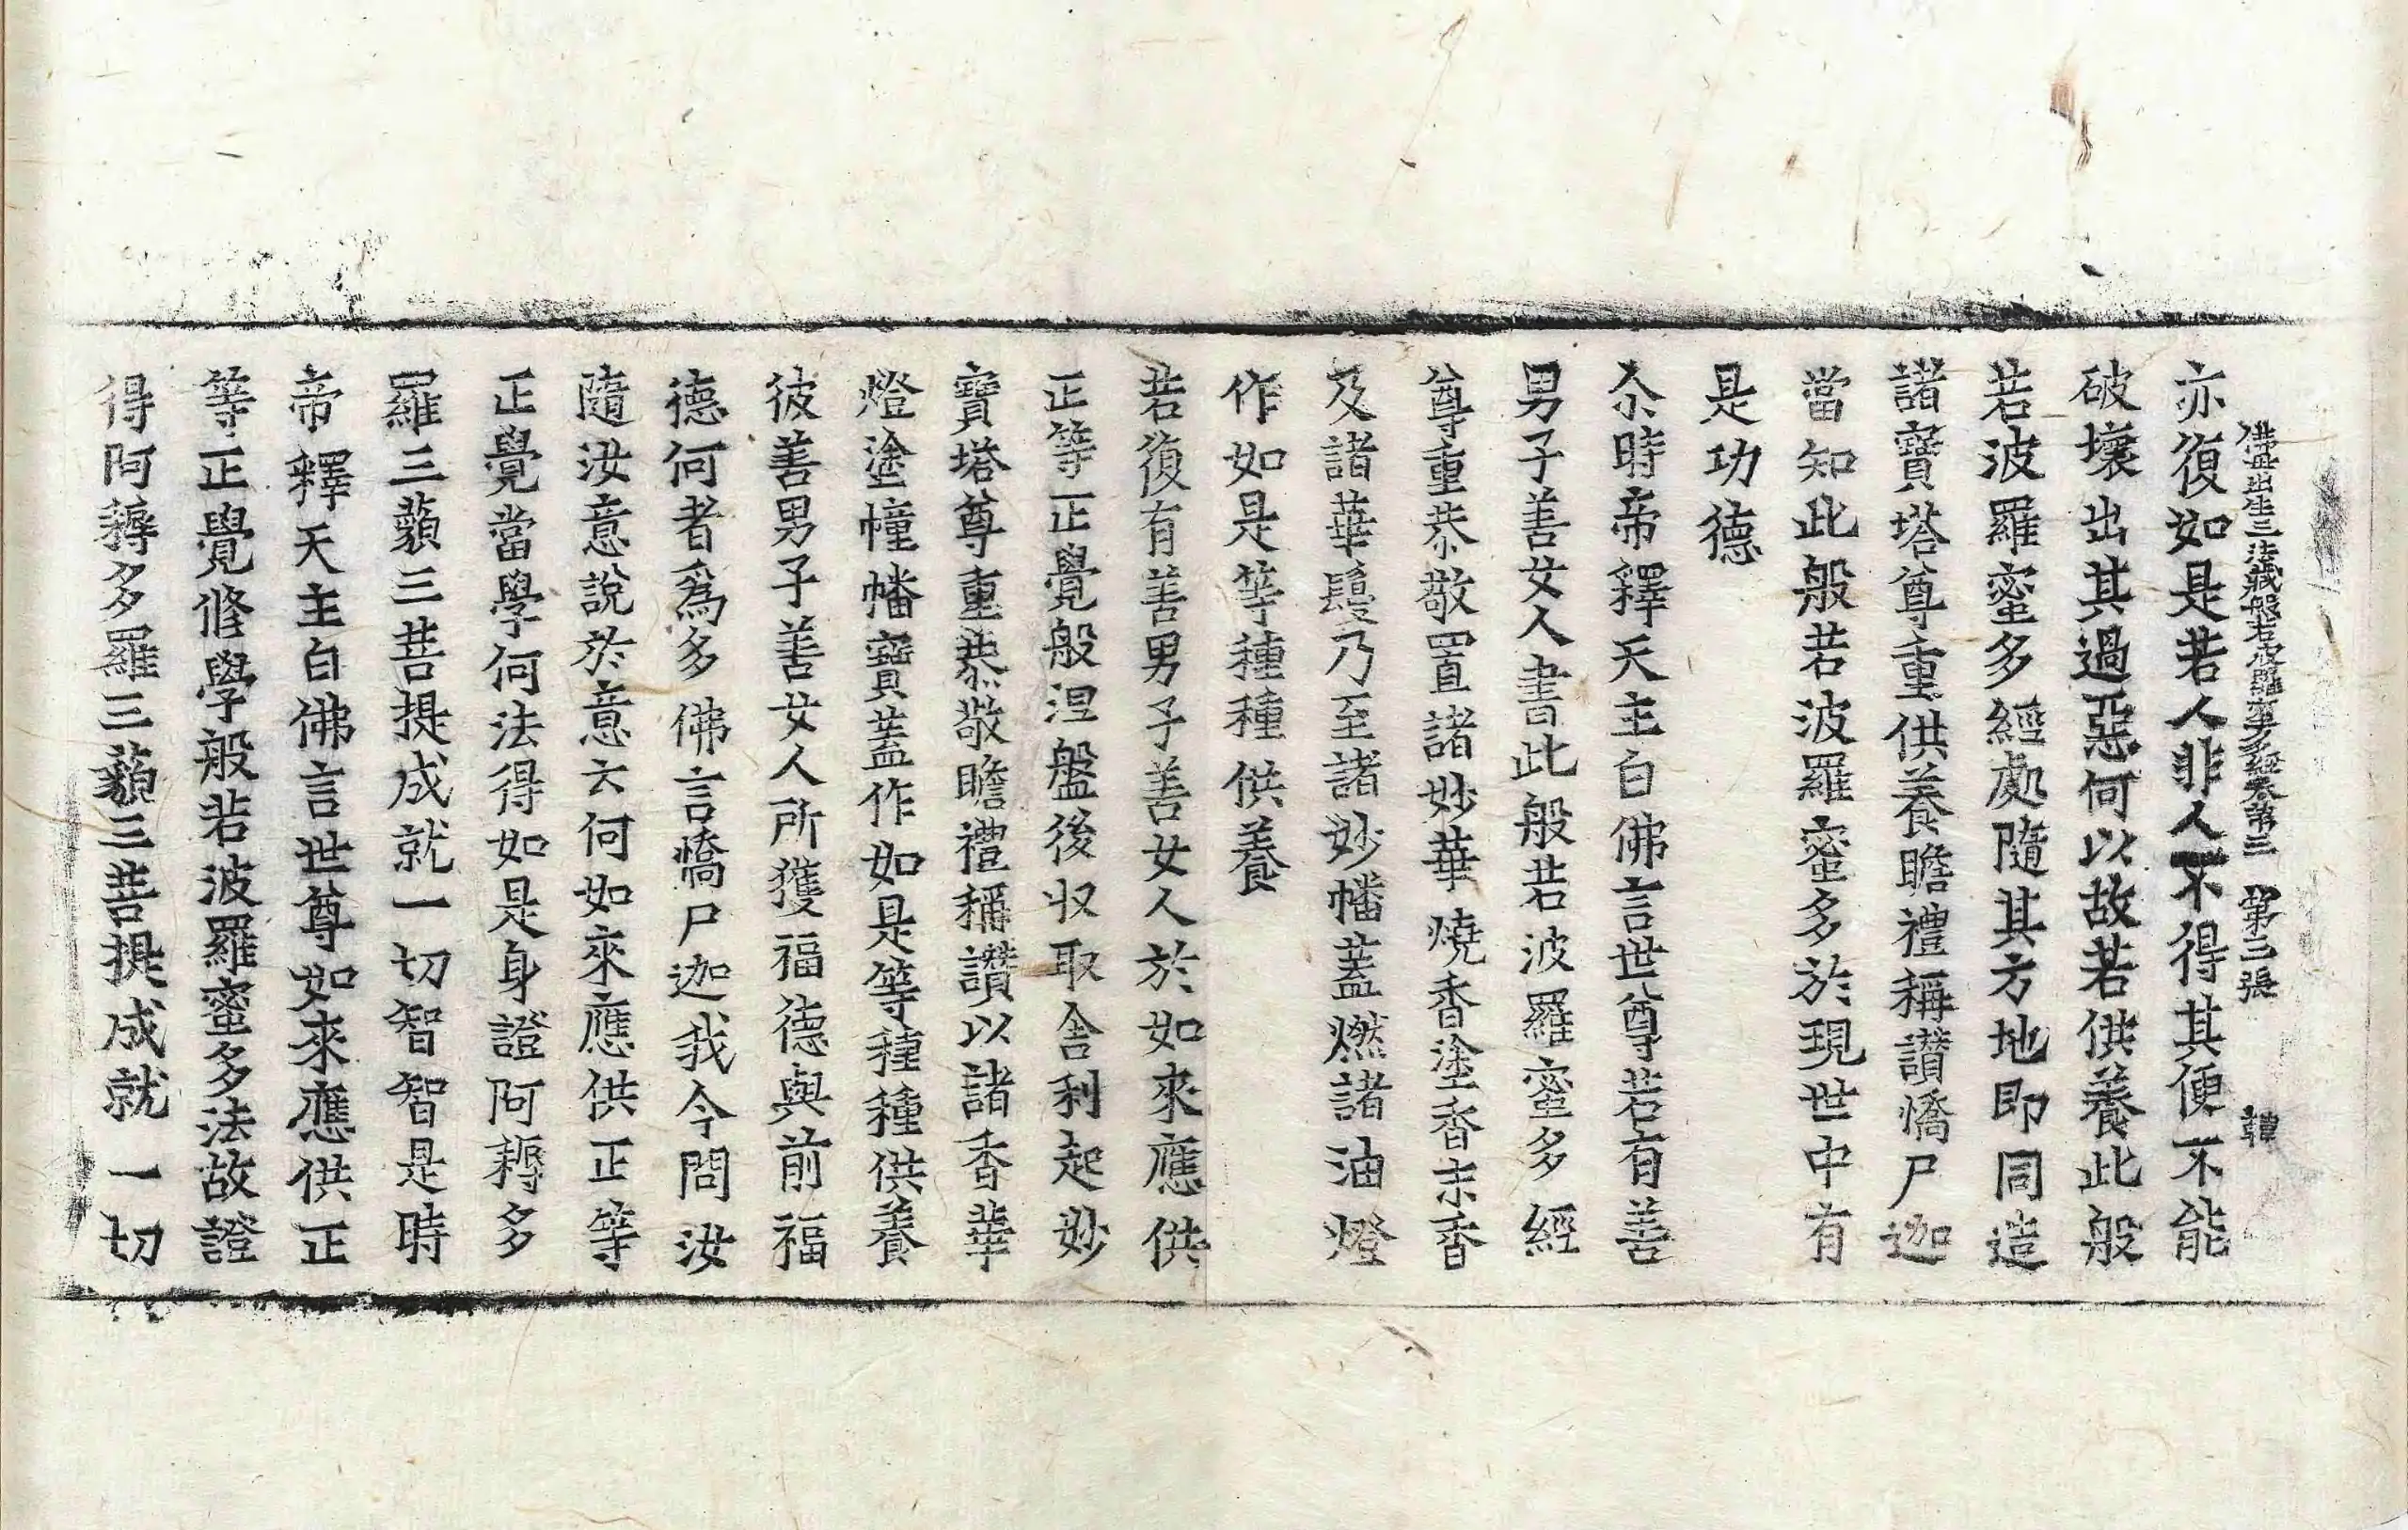 佛母出生三法藏般若波羅蜜多經卷第三 第三張 韓
亦復如是若人非人不得其便不能
破壞出其過惡何以故若供養此般
若波羅蜜多經處隨其方地即同造
諸寶塔尊重供養瞻禮稱讚憍尸迦
當知此般若波羅蜜多於現世中有
是功德
尒時帝釋天主白佛言世尊若有善
男子善女人書此般若波羅蜜多經
尊重恭敬置諸妙華燒香塗香末香
及諸華鬘乃至諸妙幡蓋燃諸油燈
作如是等種種供養
若復有善男子善女人於如來應供
正等正覺般涅盤後收取舍利起妙
寶塔尊重恭敬瞻禮稱讚以諸香華
燈塗幢幡寶蓋作如是等種種供養
彼善男子善女人所獲福德與前福
德何者爲多佛言憍尸迦我今問汝
隨汝意說於意云何如來應供正等
正覺當學何法得如是身證阿耨多
羅三藐三菩提成就一切智智是時
帝釋天主白佛言世尊如來應供正
等正覺修學般若波羅蜜多法故證
得阿耨多羅三藐三菩提成就一切